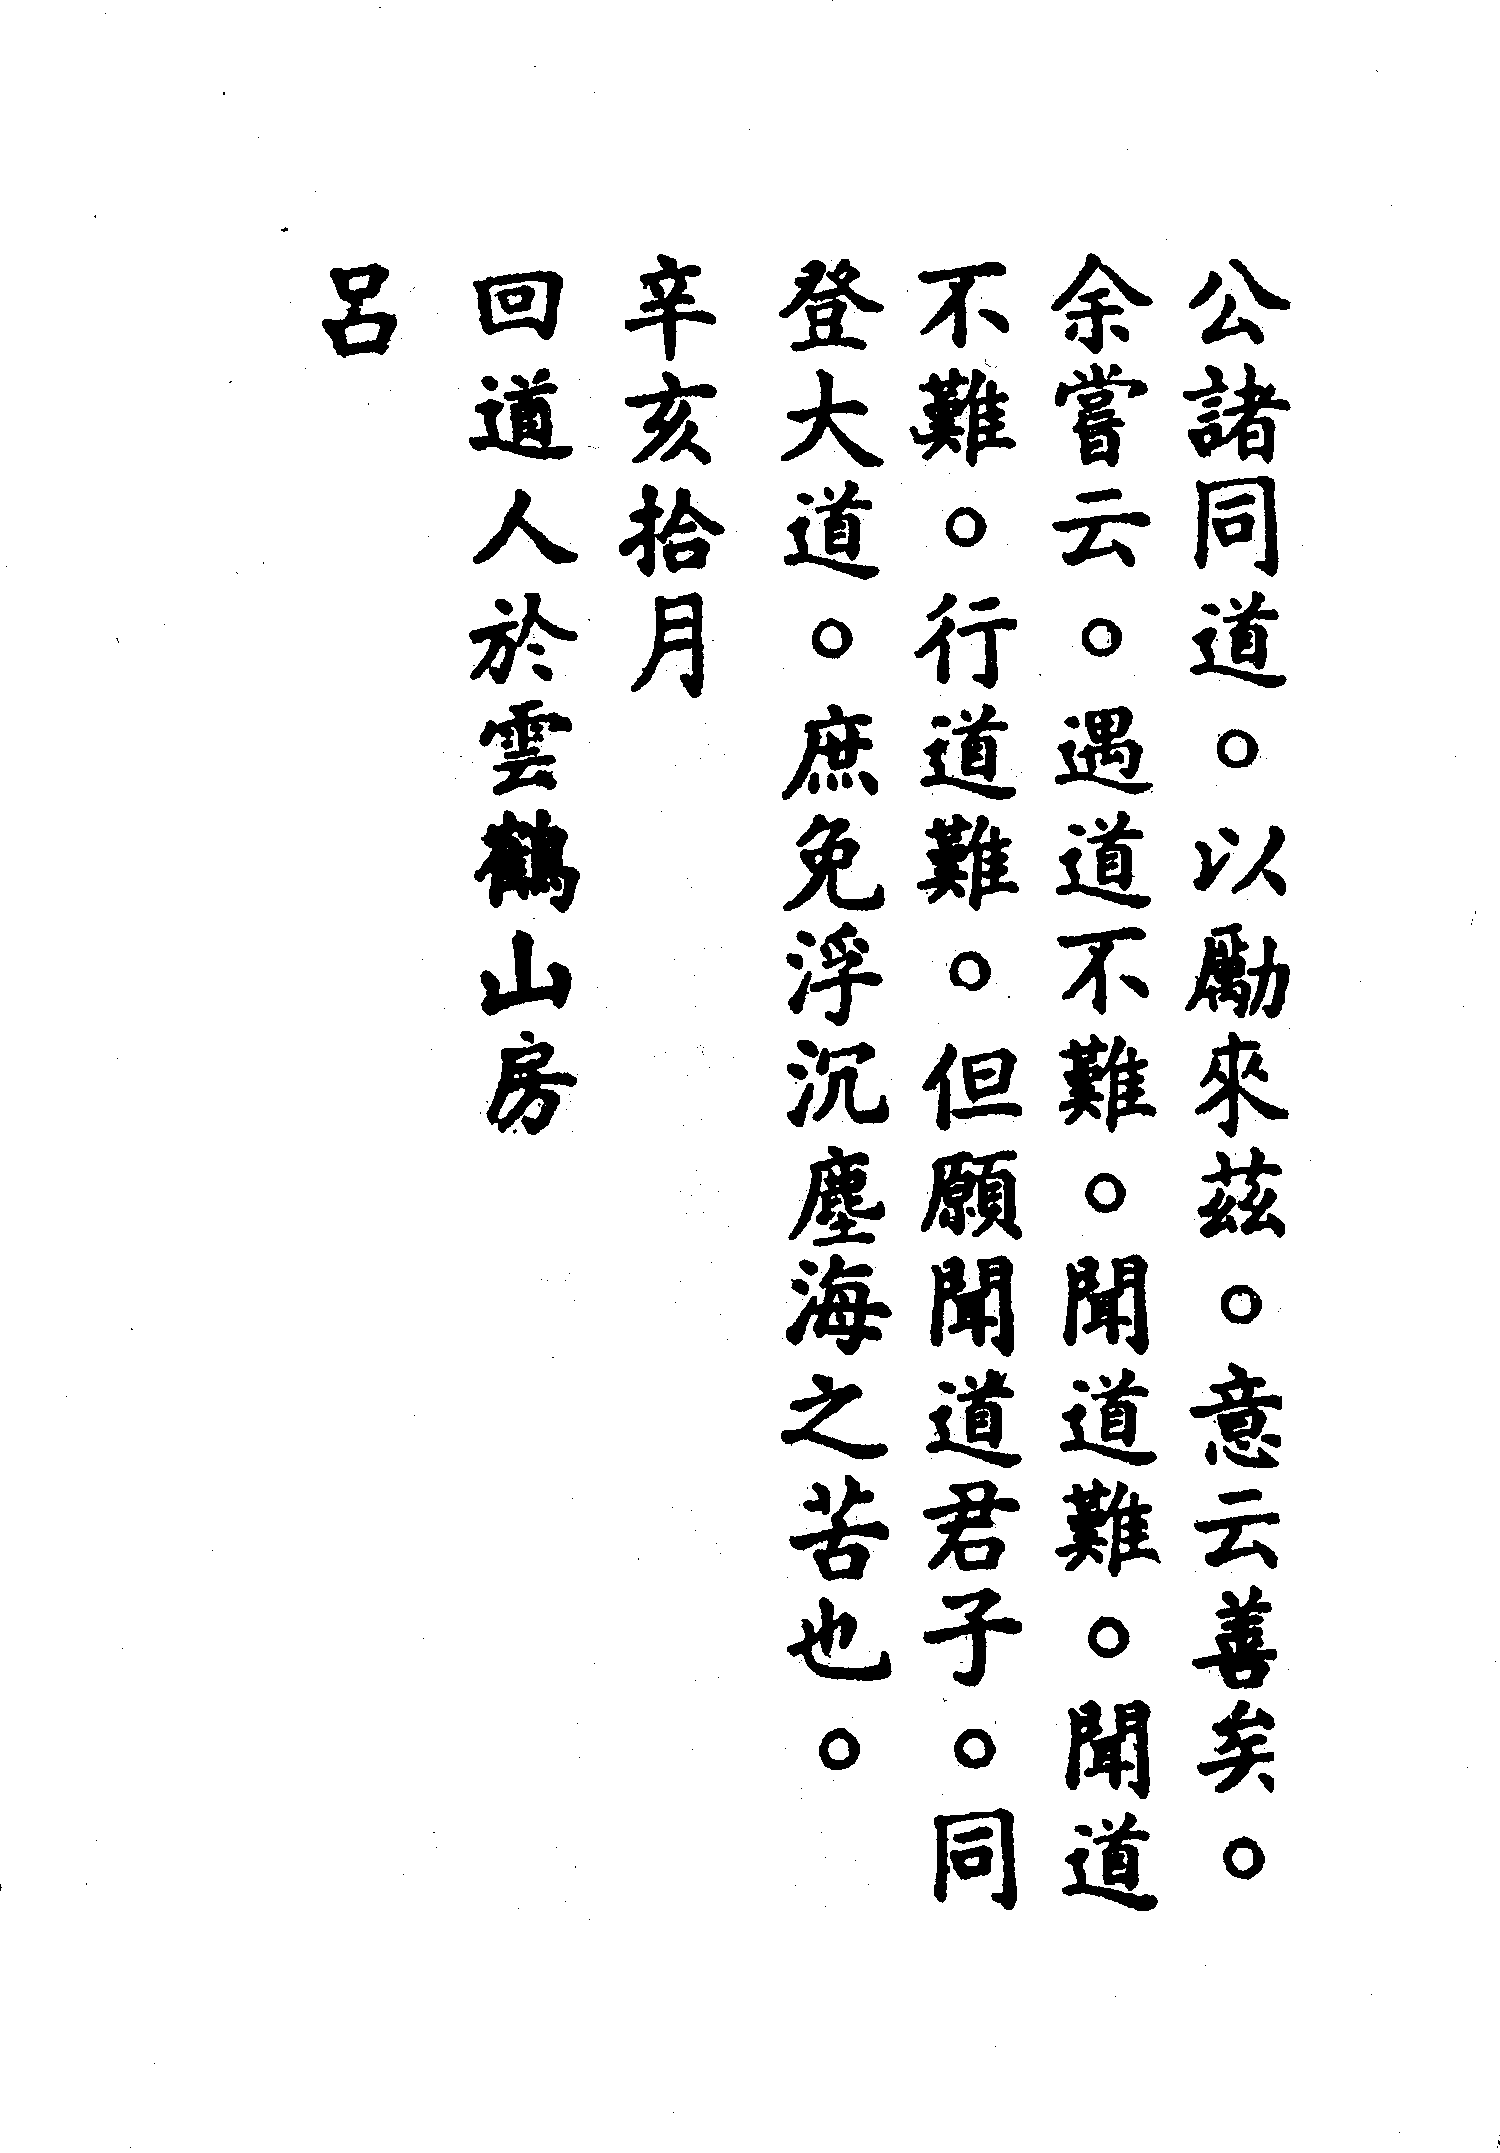 公諸同道。以勵來茲。意云善矣。
余嘗云。遇道不難。聞道難。聞道
不難。行道難。但願聞道君子。同
登大道。庶免浮沉塵海之苦也。
辛亥拾月
回道人於雲鶴山房
呂